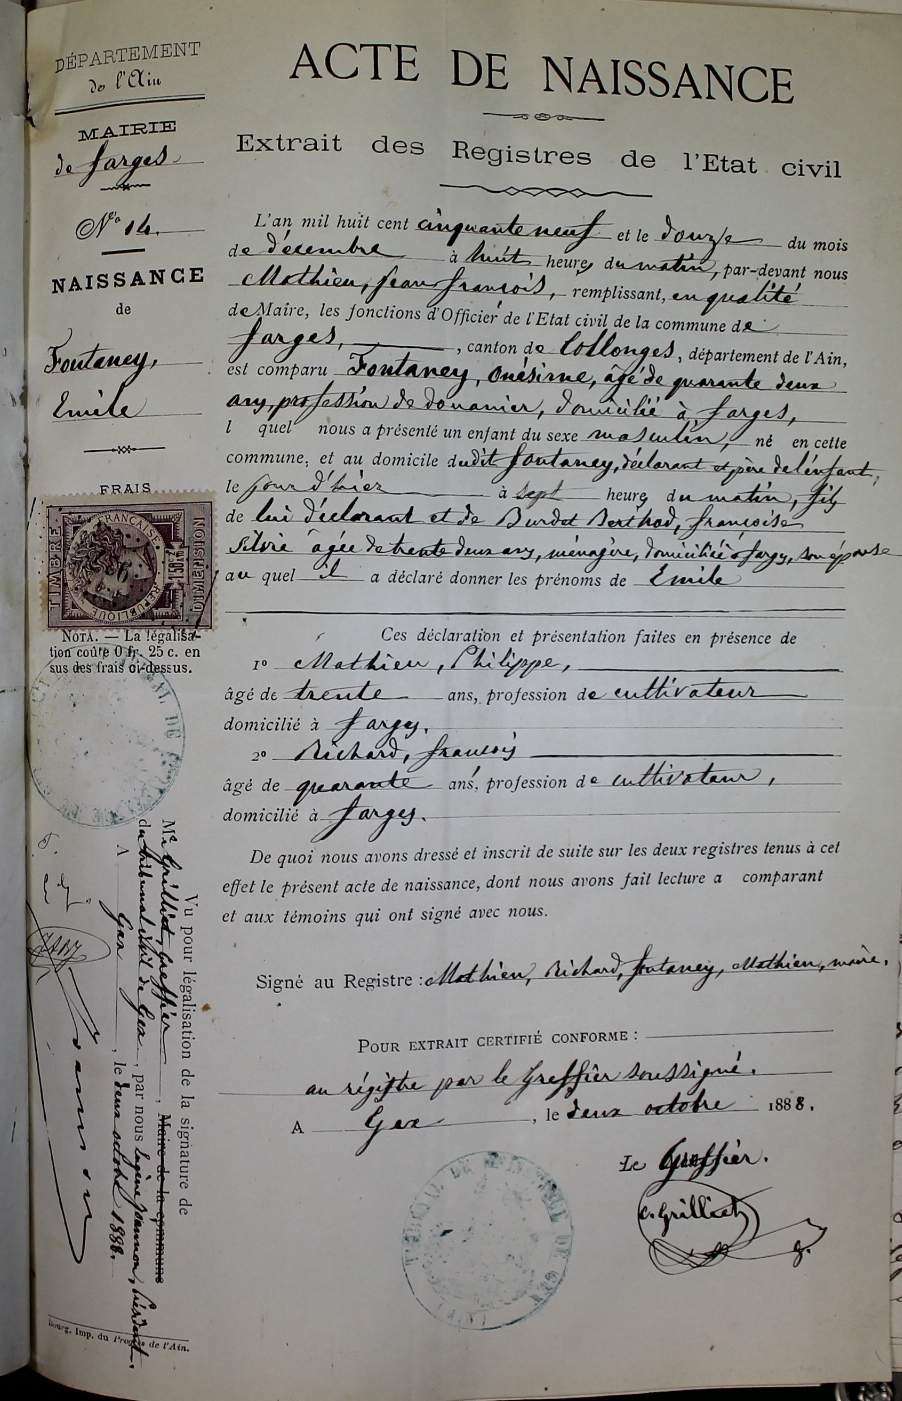 DÉPARTEMENT
de l'Ain
MAIRIE
de Farges
No 14.
NAISSANCE
de
Fontaney,
Emile
FRAIS
TIMBRE
RÉPUBLIQUE FRANÇAISE
DIMENSION
NOTA. — La légalisa-
tion coûte 0 fr. 25 c. en
sus des frais ci-dessus.
ACTE DE NAISSANCE
Extrait des Registres de l'Etat civil
L'an mil huit cent cinquante neuf et le douze du mois
de décembre à huit heures du matin, par-devant nous
Mathieu, Jean françois, remplissant, en qualité
de Maire, les fonctions d'Officier de l'Etat civil de la commune de
Farges, canton de Collonges, département de l'Ain,
est comparu Fontaney, onésime, âgé de quarante deux
ans, profession de douanier, domicilié à Farges,
l quel nous a présenté un enfant du sexe masculin, né en cette
commune, et au domicile dudit fontaney, déclarant et père de l'enfant,
le jour d'hier à sept heures du matin, fils
de lui déclarant et de Burdet Berthod, françoise
Silvie âgée de trente deux ans, ménagère, domiciliée à Farges, son épouse
au quel il a déclaré donner les prénoms de Emile
Ces déclaration et présentation faites en présence de
1º Mathieu, Philippe,
âgé de trente ans, profession de cultivateur
domicilié à Farges.
2º Richard, françois
âgé de quarante ans, profession de cultivateur,
domicilié à Farges.
De quoi nous avons dressé et inscrit de suite sur les deux registres tenus à cet
effet le présent acte de naissance, dont nous avons fait lecture a comparant
et aux témoins qui ont signé avec nous.
Signé au Registre : Mathieu, Richard, fontaney, Mathieu, maire.
POUR EXTRAIT CERTIFIÉ CONFORME :
au régistre par le Greffier soussigné.
A Gex, le deux octobre 1888.
Le Greffier.
C. Grilliet
Vu pour légalisation de la signature de
Me Grilliet, Greffier, Maire de la commune
du tribunal civil de Gex, par nous Eugène Jannon, Président,
A Gex, le deux octobre 1888.
Jannon
Bourg, Imp. du Progrès de l'Ain.